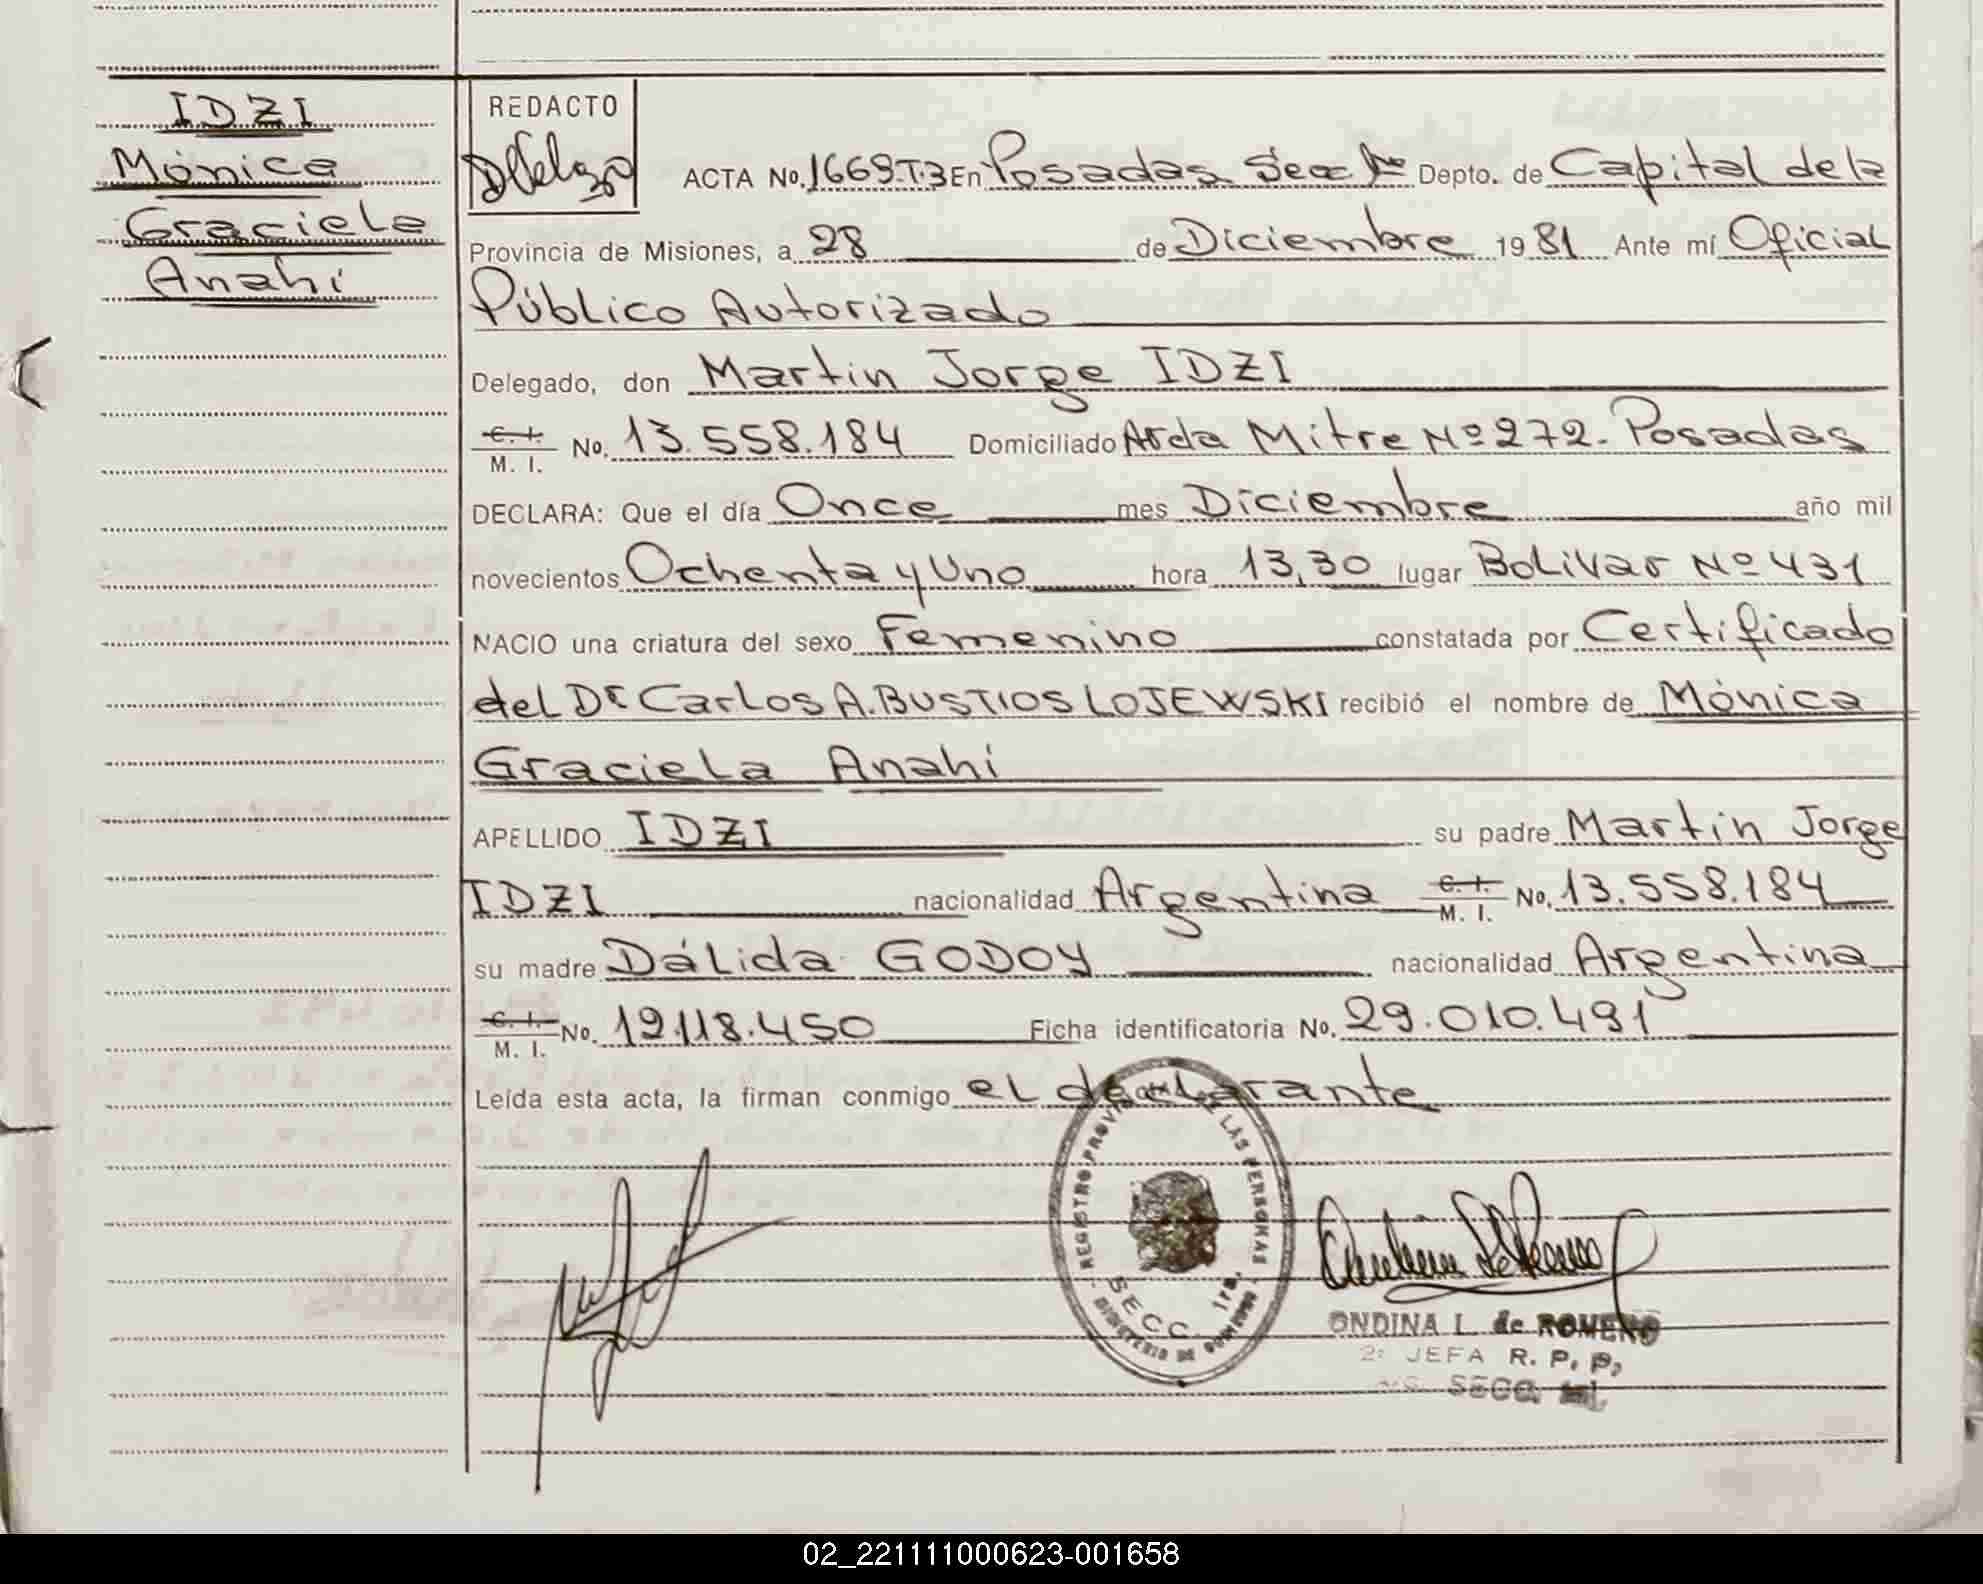 IDZI
Mónica
Graciela
Anahí
REDACTO
ACTA No. 1669.T.3 En Posadas Secc 1ra Depto. de Capital de la
Provincia de Misiones, a 28 de Diciembre 1981 Ante mí Oficial
Público Autorizado
Delegado, don Martin Jorge IDZI
C. I. M. I. No. 13.558.184 Domiciliado Avda Mitre Nº 272. Posadas
DECLARA: Que el día Once mes Diciembre año mil
novecientos Ochenta y Uno hora 13,30 lugar Bolivar Nº 431
NACIO una criatura del sexo Femenino constatada por Certificado
del Dr Carlos A. BUSTIOS LOJEWSKI recibió el nombre de Mónica
Graciela Anahí
APELLIDO IDZI su padre Martin Jorge
IDZI nacionalidad Argentina C. I. M. I. No. 13.558.184
su madre Dálida GODOY nacionalidad Argentina
C. I. M. I. No. 12.118.450 Ficha identificatoria No. 29.010.491
Leída esta acta, la firman conmigo el declarante
REGISTRO PROVINCIAL DE LAS PERSONAS
SECC. 1ra.
MINISTERIO DE GOBIERNO
ONDINA L. de ROMERO
2ª JEFA R. P. P.
SECC. 1ra.
02_221111000623-001658